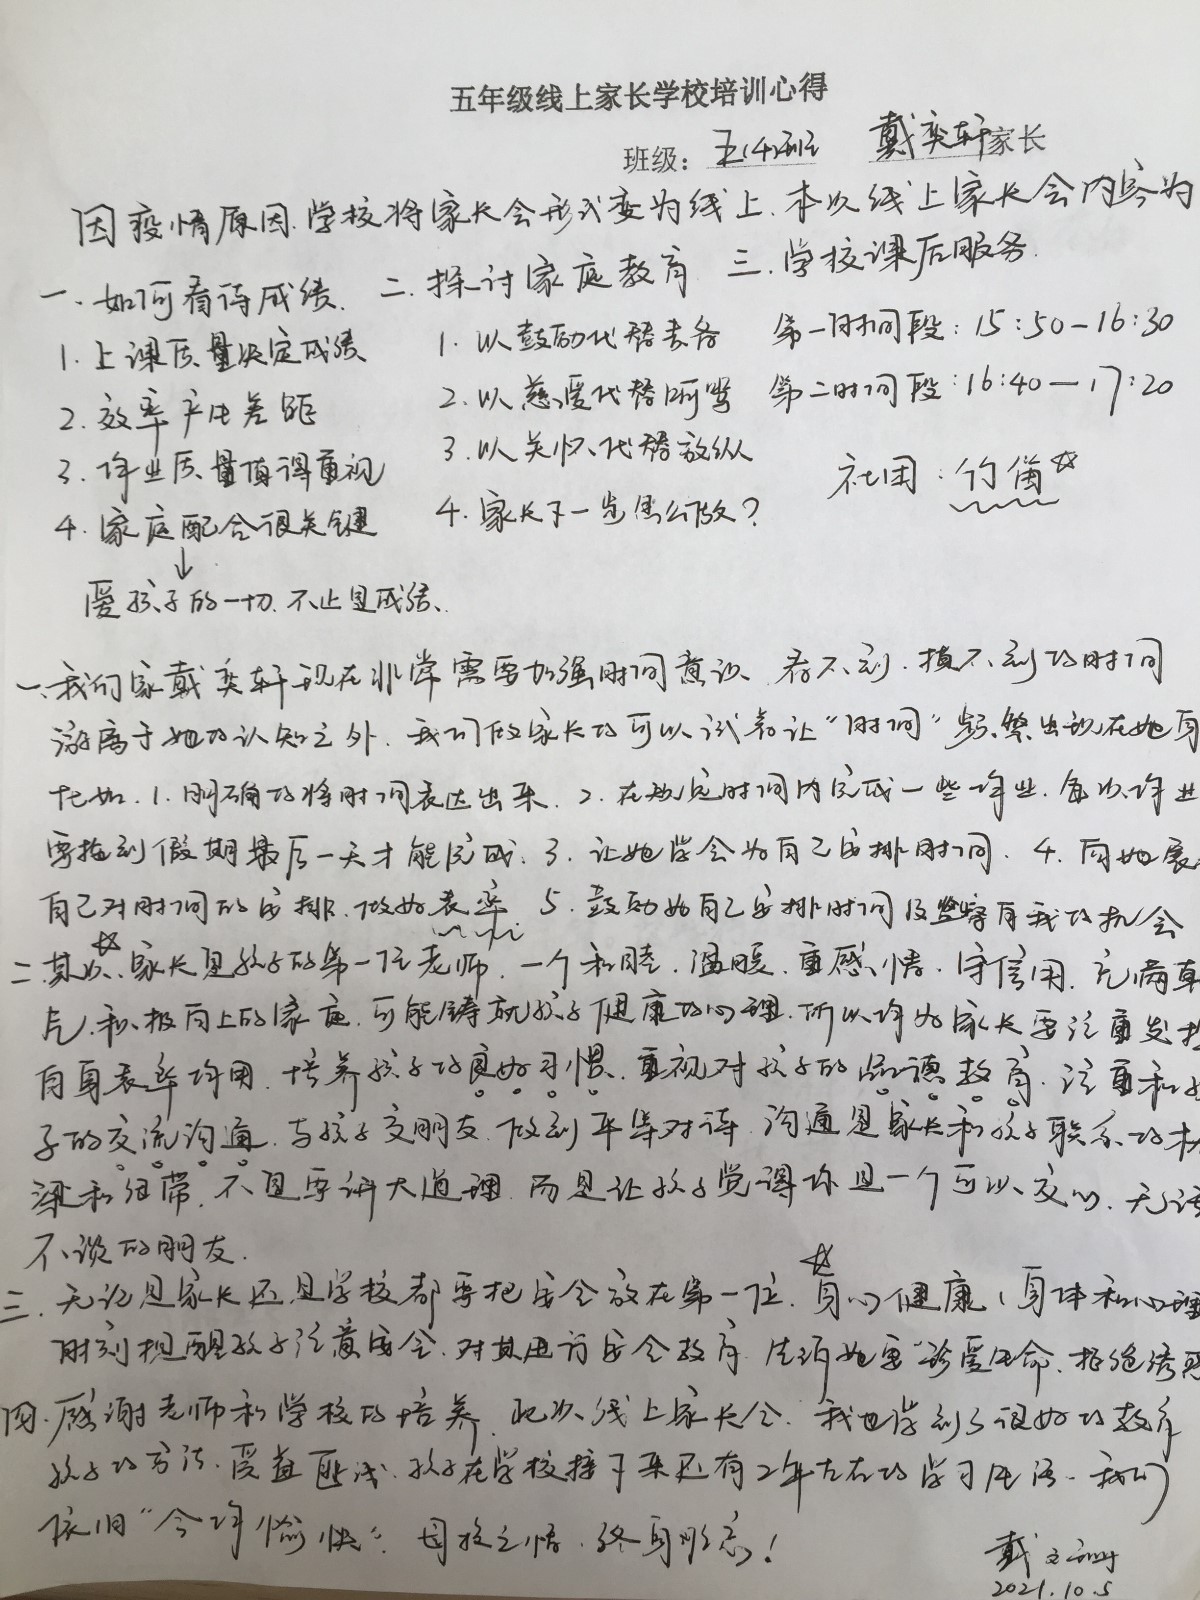 五年级线上家长学校培训心得
班级：五(4)班 戴奕轩家长
因疫情原因.学校将家长会形式变为线上.本次线上家长会内容为
一、如何看待成绩. 二.探讨家庭教育 三.学校课后服务.
1.上课质量决定成绩 1.以鼓励代替责备 第一时间段：15:50—16:30
2.效率产生差距 2.以慈爱代替呵骂 第二时间段：16:40—17:20
3.作业质量值得重视 3.以关怀代替放纵 社团：竹笛☆
4.家庭配合很关键 4.家长下一步怎么做？
↓
爱孩子的一切.不止是成绩.
一、我们家戴奕轩现在非常需要加强时间意识、看不到.摸不到的时间
游离于她的认知之外.我们做家长的可以试着让“时间”频繁出现在她身
比如.1.明确的将时间表达出来.2.在规定时间内完成一些作业.每次作业
要拖到假期最后一天才能完成.3.让她学会为自己安排时间.4.向她展
自己对时间的安排.做好表率 5.鼓励她自己安排时间及 自我的机会
二.其次☆、家长是孩子的第一位老师.一个和睦.温暖.重感情.守信用.充满
.积极向上的家庭.可能铸就孩子健康的心理.所以作为家长要注重发挥
自身表率作用.培养孩子的良好习惯.重视对孩子的品德教育.注重和孩
子的交流沟通.与孩子交朋友.做到平等对待.沟通是家长和孩子联系的
梁和纽带.不是要讲大道理.而是让孩子觉得你是一个可以交心.无话
不谈的朋友.
三.无论是家长还是学校都要把安全放在第一位.☆身心健康(身体和心理
时刻提醒孩子注意安全.对其进行安全教育.告诉她要珍爱生命.拒绝诱惑
四.感谢老师和学校的培养.此次线上家长会.我也学到了很好的教育
孩子的方法.受益匪浅.孩子在学校接下来还有2年左右的学习生活.我们
依旧“合作愉快”.母校之情.终身难忘！
戴
2021.10.5